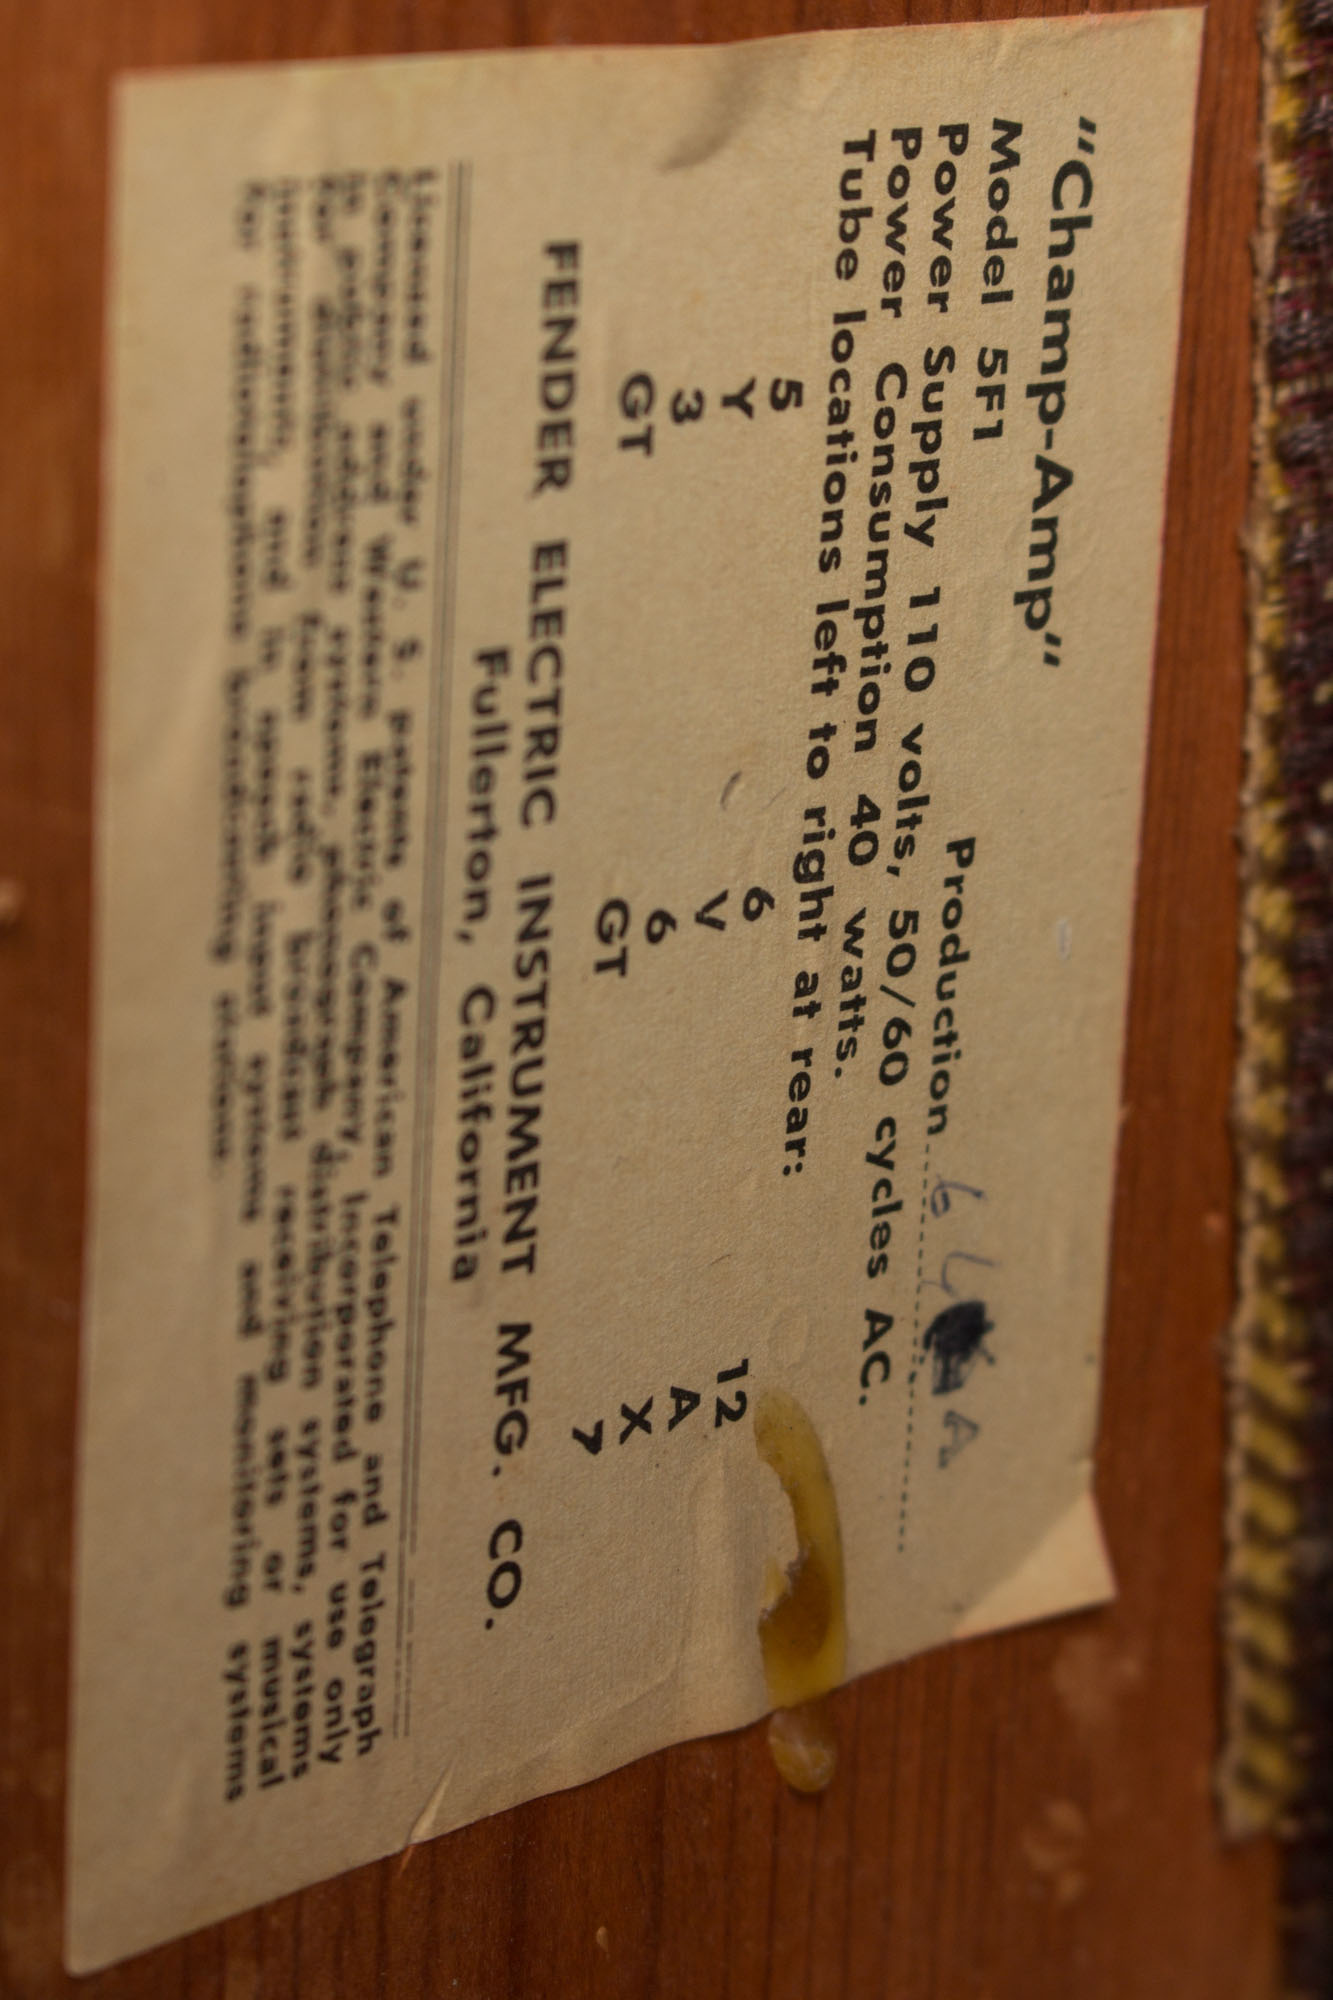 "Champ-Amp"
Model 5F1 Production
Power Supply 110 volts, 50/60 cycles AC.
Power Consumption 40 watts.
Tube locations left to right at rear:
5 6 12
Y V A
3 6 X
GT GT 7
FENDER ELECTRIC INSTRUMENT MFG. CO.
Fullerton, California
Licensed under U. S. patents of American Telephone and Telegraph
Company and Western Electric Company, Incorporated for use only
in public address systems, phonograph distribution systems, systems
for distribution from radio broadcast receiving sets or musical
instruments, and in speech input systems and monitoring systems
for radiotelephone broadcasting stations.